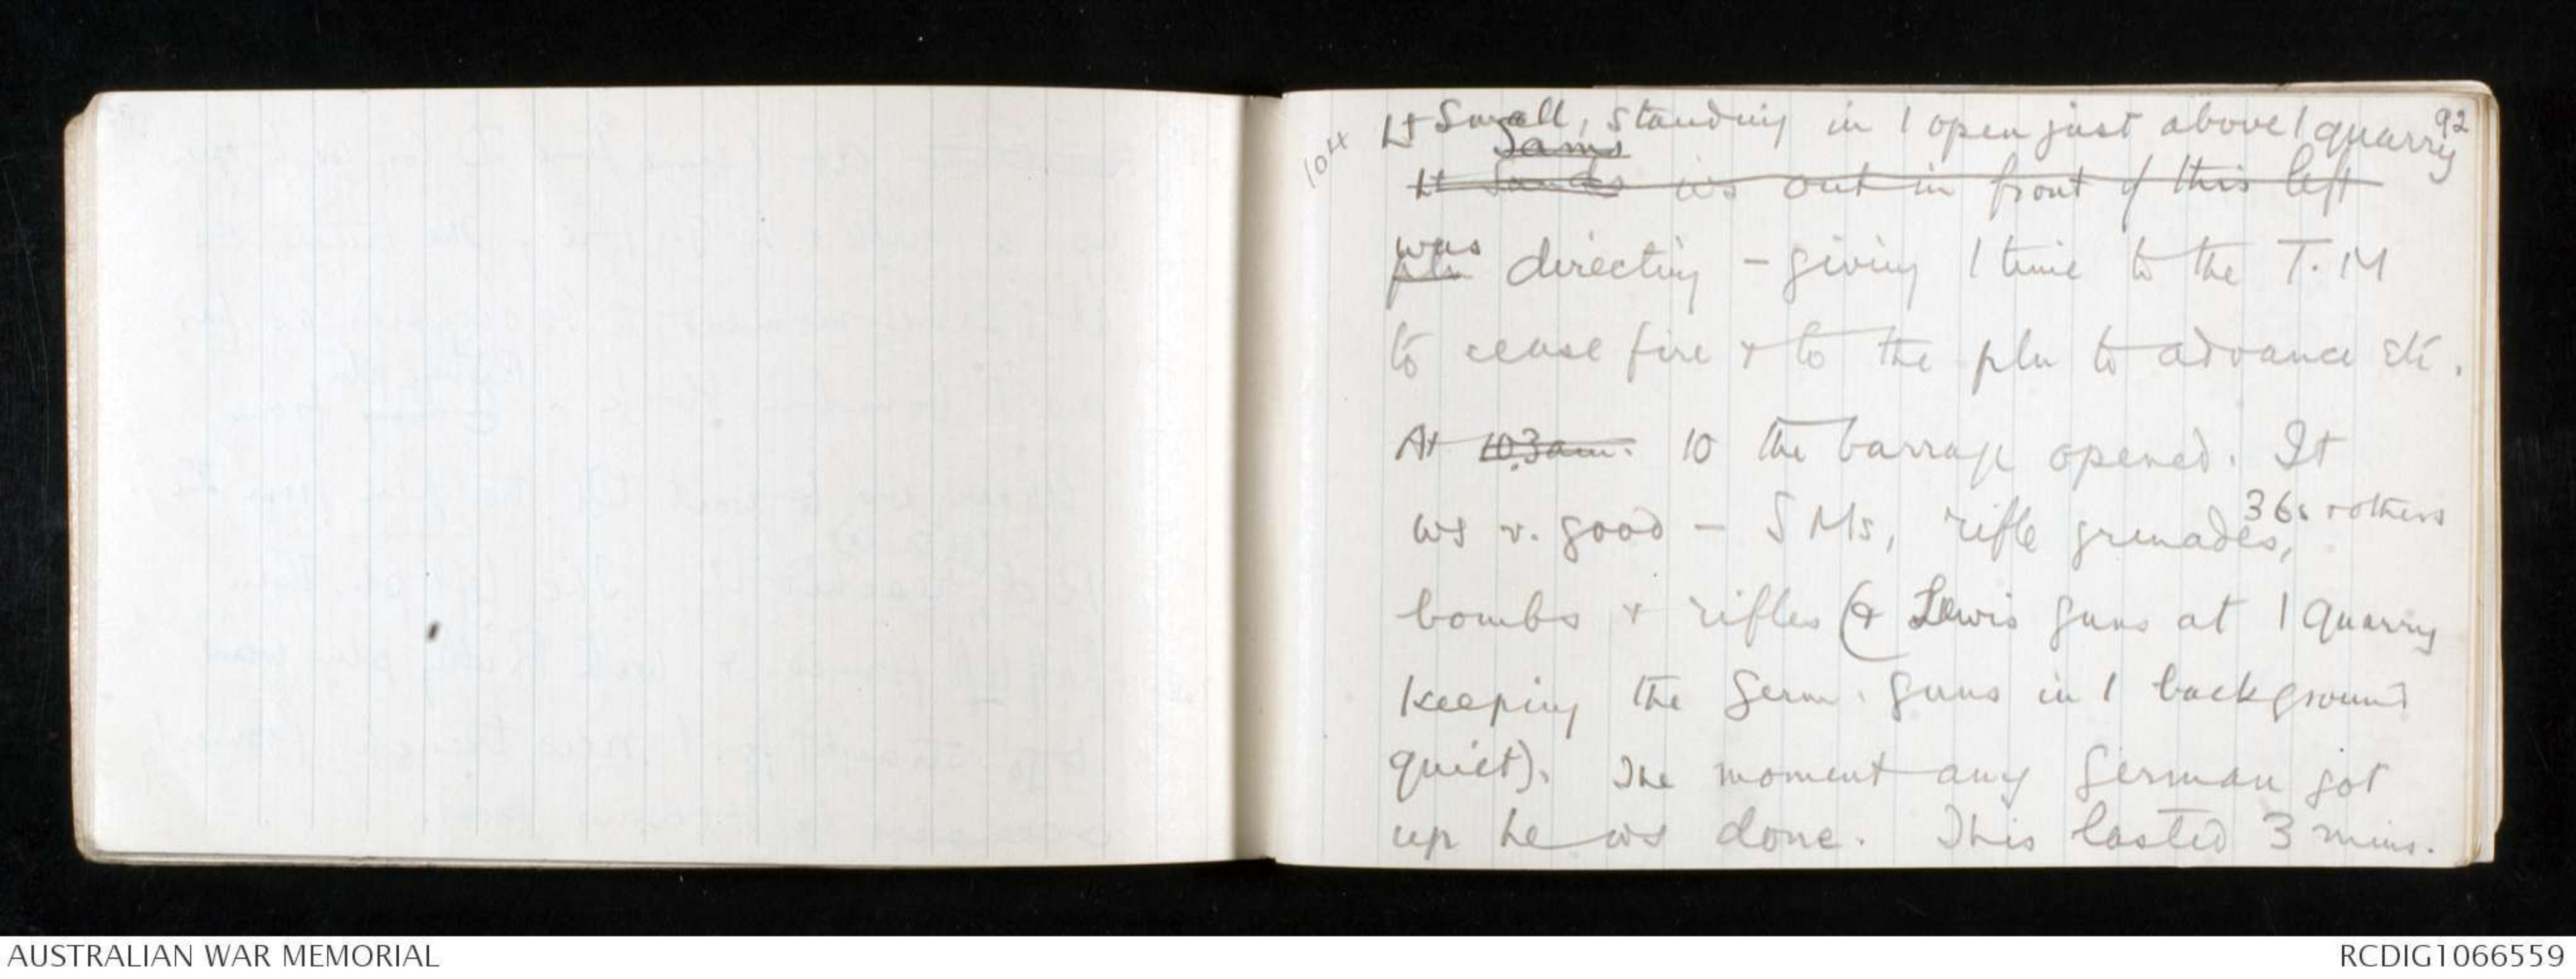 92
104
Lt Small, standing in 1 open just above 1 quarry
Sams
Lt Sands ws out in front of this left
was
pln directing - giving 1 time to the T.M
to cease fire + to the pln to advance etc.
At 10.3 am. 10 the barrage opened. It
ws v. good - SMs, rifle grenades, 36s + others
bombs + rifles (+ Lewis guns at 1 quarry
keeping the Germ. guns in 1 background
quiet). The moment any German got
up he ws done. This lasted 3 mins.
AUSTRALIAN WAR MEMORIAL
RCDIG1066559